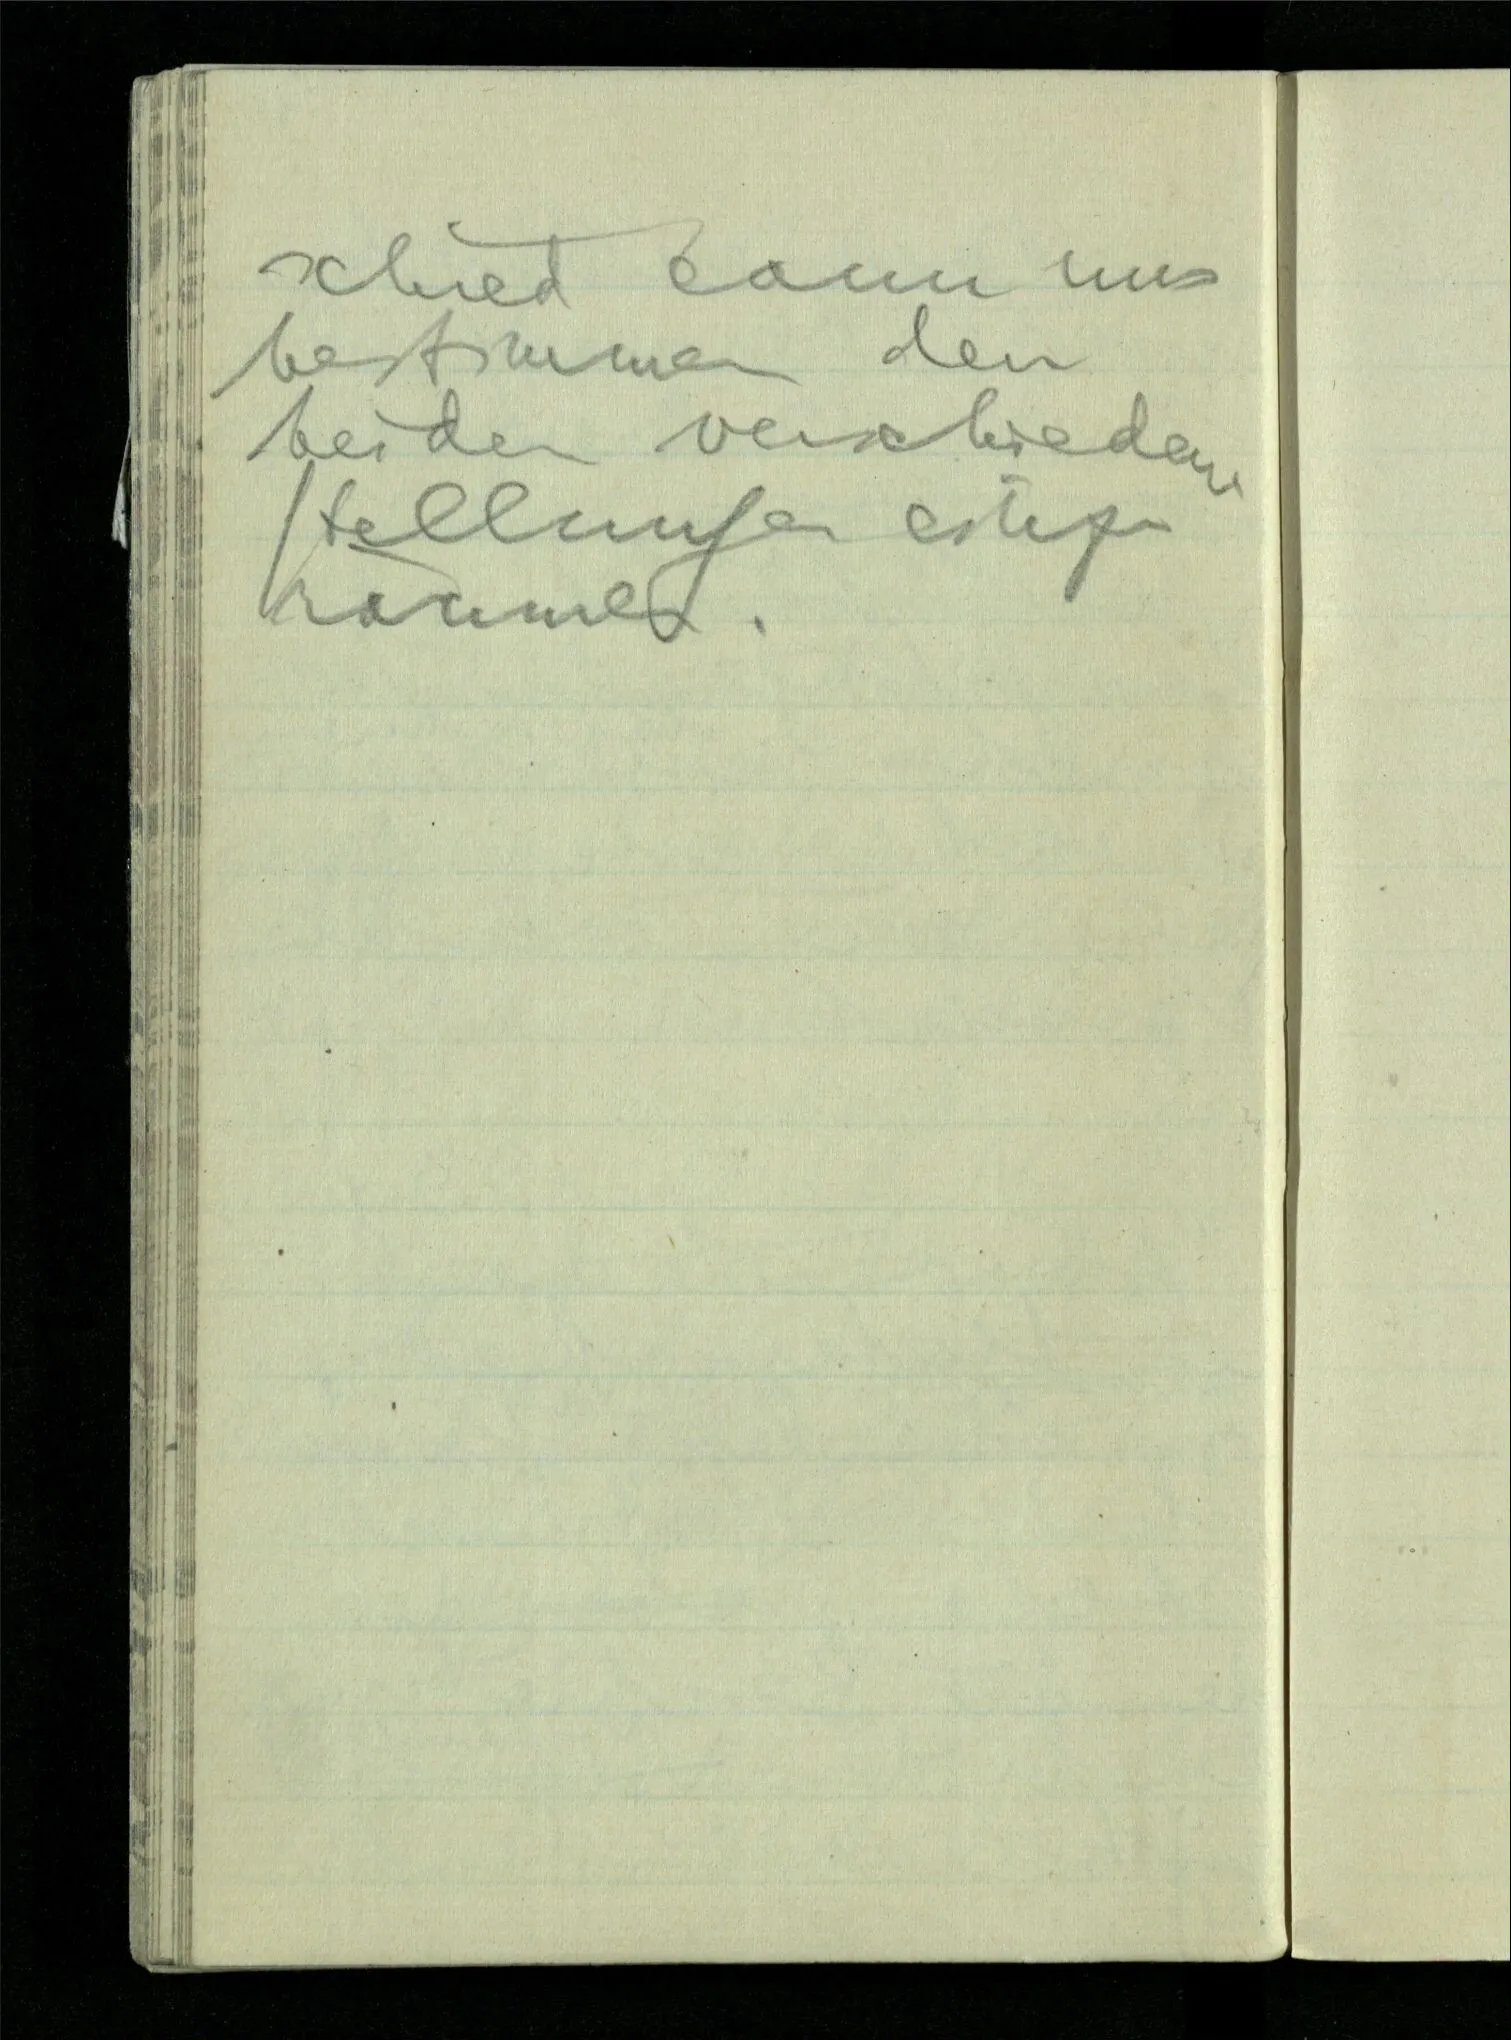 schied kann uns
bestimmen den
beiden verschiedene
Stellungen